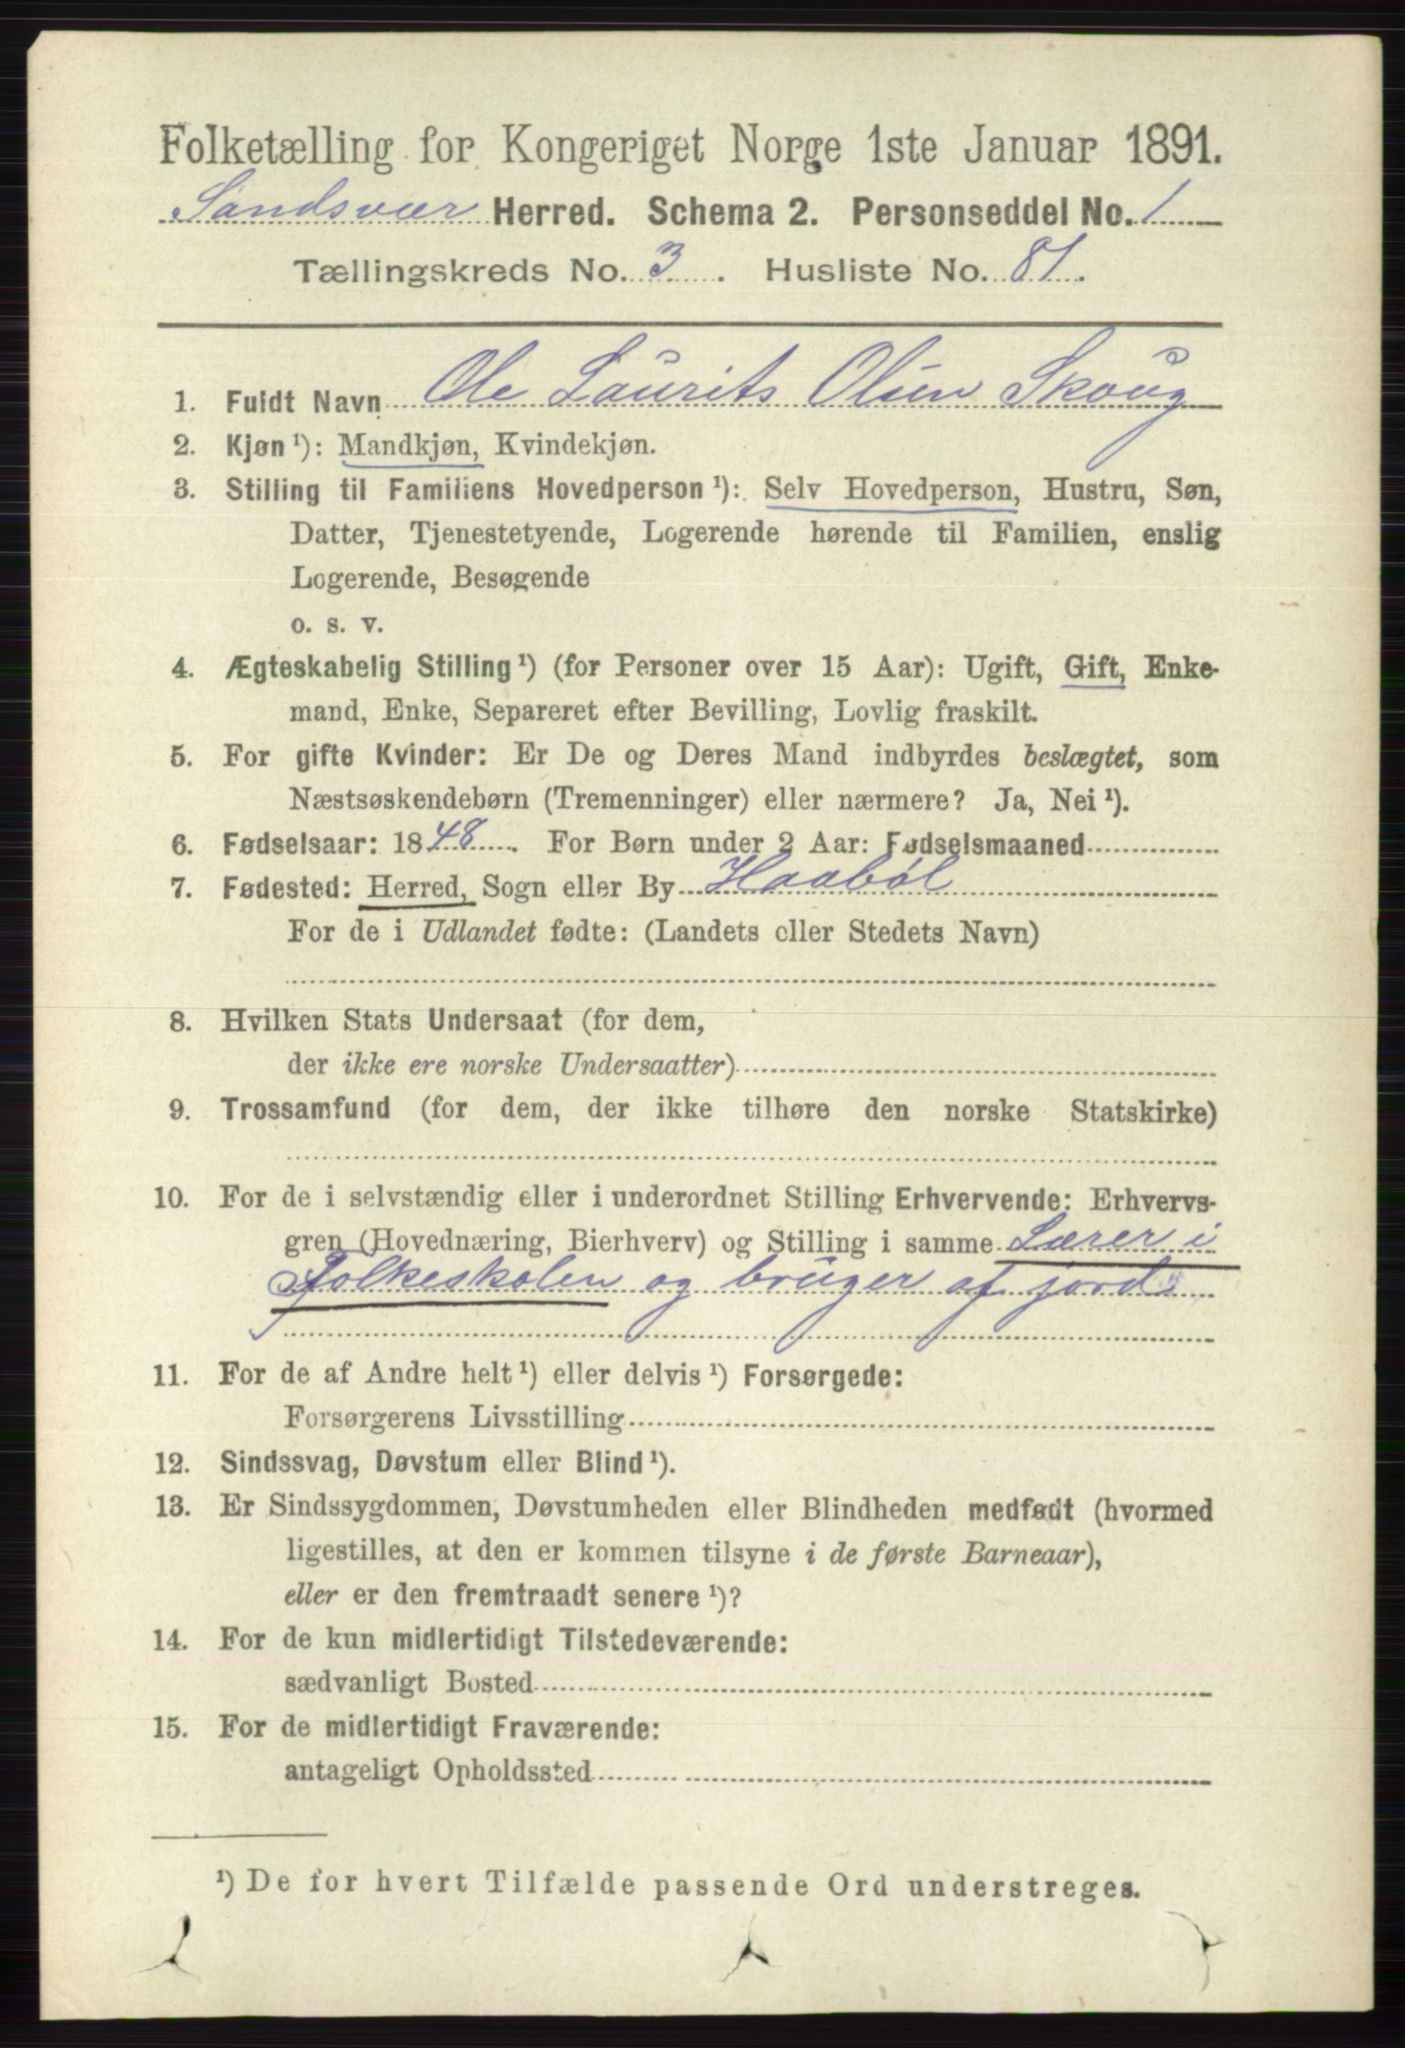 Folketælling for Kongeriget Norge 1ste Januar 1891.
Sandsvær Herred. Schema 2. Personseddel No. 1
Tællingskreds No. 3. Husliste No. 81.
1. Fuldt Navn Ole Laurits Olsen Skoug
2. Kjøn ¹): Mandkjøn, Kvindekjøn.
3. Stilling til Familiens Hovedperson ¹): Selv Hovedperson, Hustru, Søn,
Datter, Tjenestetyende, Logerende hørende til Familien, enslig
Logerende, Besøgende
o. s. v.
4. Ægteskabelig Stilling ¹) (for Personer over 15 Aar): Ugift, Gift, Enke-
mand, Enke, Separeret efter Bevilling, Lovlig fraskilt.
5. For gifte Kvinder: Er De og Deres Mand indbyrdes beslægtet, som
Næstsøskendebørn (Tremenninger) eller nærmere? Ja, Nei ¹).
6. Fødselsaar: 1848. For Børn under 2 Aar: Fødselsmaaned
7. Fødested: Herred, Sogn eller By Haabøl
For de i Udlandet fødte: (Landets eller Stedets Navn)
8. Hvilken Stats Undersaat (for dem,
der ikke ere norske Undersaatter)
9. Trossamfund (for dem, der ikke tilhøre den norske Statskirke)
10. For de i selvstændig eller i underordnet Stilling Erhvervende: Erhvervs-
gren (Hovednæring, Bierhverv) og Stilling i samme Lærer i
Folkeskolen og bruger af jord
11. For de af Andre helt ¹) eller delvis ¹) Forsørgede:
Forsørgerens Livsstilling
12. Sindssvag, Døvstum eller Blind ¹).
13. Er Sindssygdommen, Døvstumheden eller Blindheden medfødt (hvormed
ligestilles, at den er kommen tilsyne i de første Barneaar),
eller er den fremtraadt senere ¹)?
14. For de kun midlertidigt Tilstedeværende:
sædvanligt Bosted
15. For de midlertidigt Fraværende:
antageligt Opholdssted
¹) De for hvert Tilfælde passende Ord understreges.